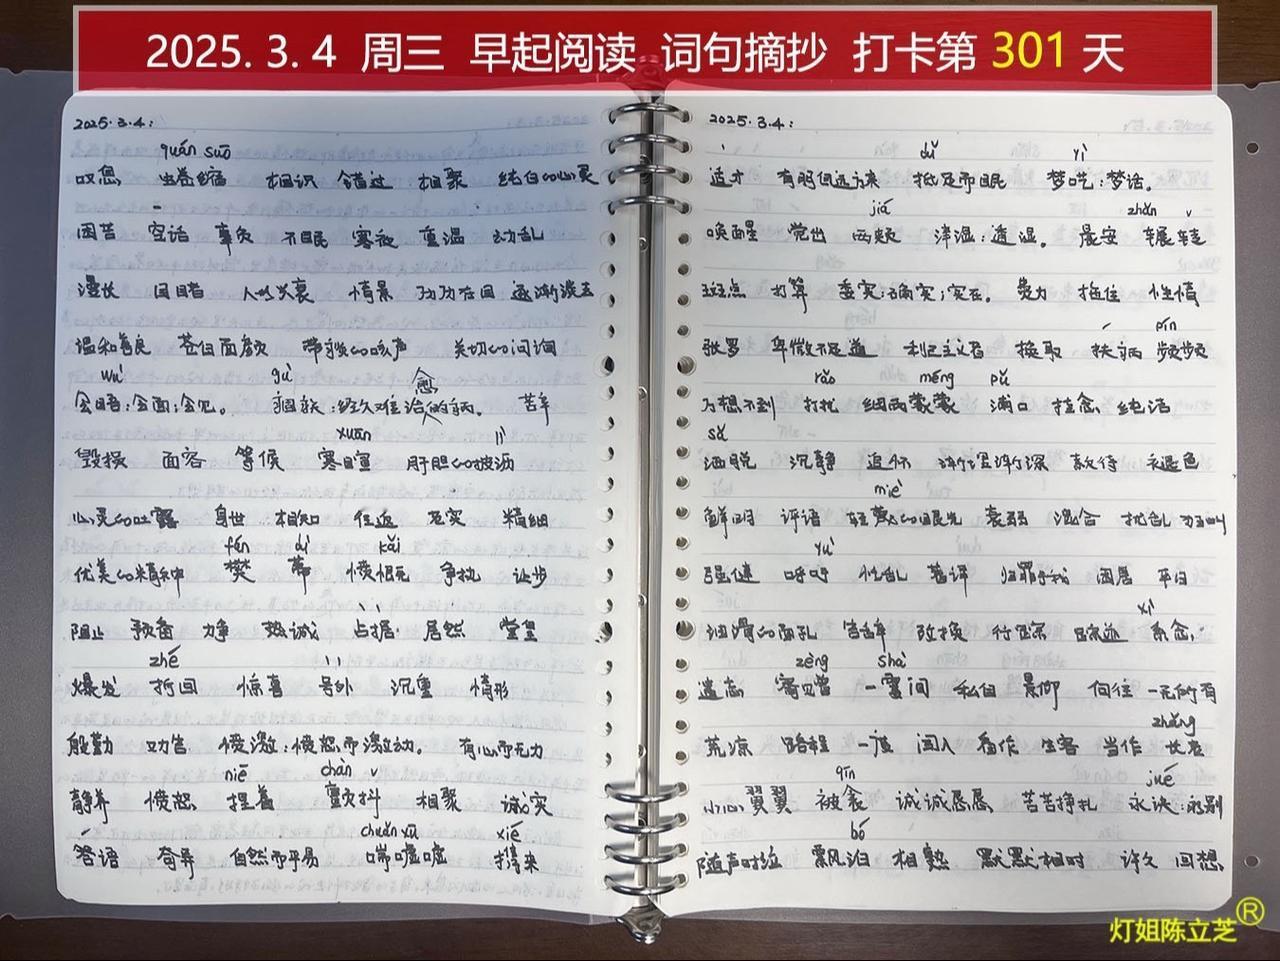 2025.3.4 周三 早起阅读 词句摘抄 打卡第 301 天
2025.3.4:
quán suō
叹息 蜷缩 相识 错过 相聚 纯白的心灵
困苦 空话 辜负 不眠 寒夜 重温 动乱
漫长 回目睹 人的头衰 情景 历历在目 逐渐淡去
温和善良 苍白面颜 带痰的咳声 关切的问询
wù gù 愈
会晤:会面;会见。 痼疾:经久难治的病。 苦辛
xuān lì
毁损 面容 等候 寒暄 肝胆的披沥
心灵的吐露 身世 相知 往返 充实 精细
fán dì kǎi
优美的精神 樊 蒂 愤慨 争执 让步
阻止 预备 力争 热诚 占据 居然 堂皇
zhé
爆发 折回 惊喜 号外 沉重 情形
殷勤 劝告 愤激:愤怒而激动。 有心而无力
niē chàn
静养 愤怒 捏着 颤抖 相聚 诚实
chuǎn xū xié
答语 奇异 自然而平易 喘嘘嘘 携来
2025.3.4:
dǐ yì
适才 有朋自远方来 抵足而眠 梦呓:梦话。
jiá zhǎn
唤醒 觉出 两颊 津湿:透湿。 晨安 辗转
斑点 打算 委实:确实;实在。 费力 拖住 性情
pín
张罗 卑微不足道 利己主义者 换取 扶病 频频
rǎo méng pǔ
万想不到 打扰 细雨蒙蒙 浦口 挂念 纯洁
sǎ
洒脱 沉静 追怀 渐渐深 款待 永退色
miè
鲜明 评语 轻蔑的眼光 衰弱 混合 扰乱
yù
强健 呼吁 性乱 著译 归罪于 困居 平白
xì
油滑的面孔 告辞 改换 行踪 踪迹 系念
zèng shà
遗志 寄赠 一霎间 私自 景仰 向往 一无所有
zhǎng
荒凉 路程 一度 闯入 看作 生客 当作 长者
qīn jué
小心翼翼 被衾 诚诚恳恳 苦苦挣扎 永诀:永别
bó
随声附和 飘泊 相熟 默默相对 许久 回想
灯姐陈立芝®